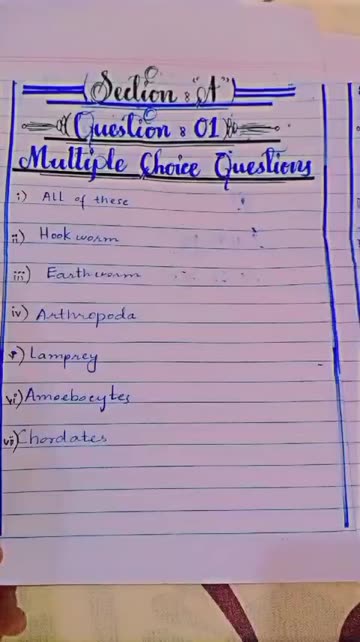 Section : "A"
Question : 01
Multiple Choice Questions
i) All of these
ii) Hook worm
iii) Earthworm
iv) Arthropoda
v) Lamprey
vi) Amoebocytes
vii) Chordates